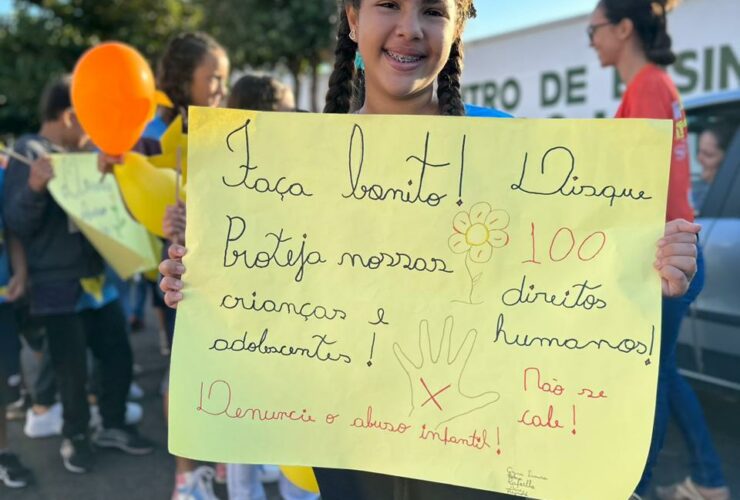 Faça bonito!
Proteja nossas
crianças e
adolescentes!
Denuncie o abuso infantil!
Disque
100
direitos
humanos!
Não se
cale!
TRO DE ENSIN